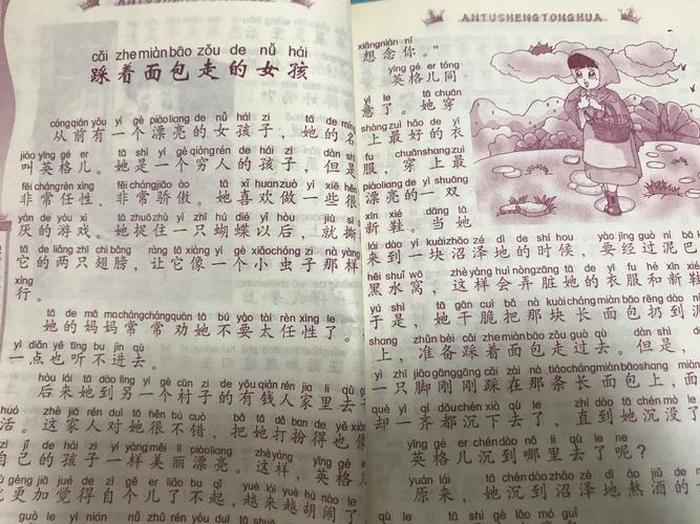 ANTUSHENGTONGHUA
cǎi zhe miàn bāo zǒu de nǚ hái
踩着面包走的女孩
cóng qián yǒu yí gè piào liang de nǚ hái zi tā de
从前有一个漂亮的女孩子，她的名
jiào yīng gé er tā shì yí gè qióng rén de hái zi dàn shì
叫英格儿。她是一个穷人的孩子，但是
fēi cháng rèn xìng fēi cháng jiāo ào tā xǐ huan zuò yì xiē
非常任性、非常骄傲。她喜欢做一些很
yàn de yóu xì tā zhuō zhù yì zhī hú dié yǐ hòu jiù
厌的游戏。她捉住一只蝴蝶以后，就撕
tā de liǎng zhī chì bǎng ràng tā xiàng yí gè xiǎo chóng zi nà yàng
它的两只翅膀，让它像一个小虫子那样
xíng
行。
tā de mā ma cháng cháng quàn tā bú yào tài rèn xìng le
她的妈妈常常劝她不要太任性了。
yì diǎn yě tīng bu jìn qù
一点也听不进去。
hòu lái tā dào lìng yí gè cūn zi de yǒu qián rén jiā li qù
后来她到另一个村子的有钱人家里去
huó zhè jiā rén duì tā hěn bú cuò bǎ tā dǎ ban de yě
活。这家人对她很不错，把她打扮得也像
zì jǐ de hái zi yí yàng měi lì piào liang zhè yàng yīng gé
自己的孩子一样美丽漂亮。这样，英格儿
gèng jiā jué de zì gě er liǎo bu qǐ yuè lái yuè hú nào le
更加觉得自个儿了不起，越来越胡闹了
guò le yì nián
ANTUSHENGTONGHUA
xiǎng niàn nǐ
想念你。”
yīng gé er tóng
英格儿同
yì le tā chuān
意了。她穿
shàng zuì hǎo de yī
上最好的衣
fu chuān shang zuì
服，穿上最
piào liang de yì shuāng
漂亮的一双
xīn xié dāng tā
新鞋。当她
lái dào yí kuài zhǎo zé dì de shí hou yào jīng guò ní bā
来到一块沼泽地的时候，要经过泥巴
hēi shuǐ wō zhè yàng huì nòng zāng tā de yī fu hé xīn xié
黑水窝，这样会弄脏她的衣服和新鞋
yú shì tā gān cuì bǎ nà kuài cháng miàn bāo rēng dào
于是，她干脆把那块长面包扔到泥
shang zhǔn bèi cǎi zhe miàn bāo zǒu guò qù dàn shì
上，准备踩着面包走过去。但是，
yì zhī jiǎo gāng gāng cǎi zài nà tiáo cháng miàn bāo shàng
一只脚刚刚踩在那条长面包上，面
què yì qí dōu chén xià qù le zhí dào tā chén mò
却一齐都沉下去了，直到她沉没了
yīng gé er chén dào nǎ li qù le ne
英格儿沉到哪里去了呢？
yuán lái tā chén dào zhǎo zé dì áo jiǔ de
原来，她沉到沼泽地熬酒的